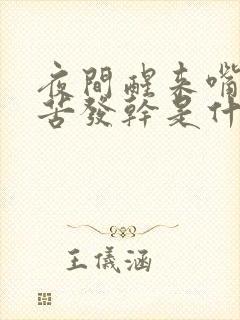 夜間醒来嘴
苦發幹是什
王儀涵